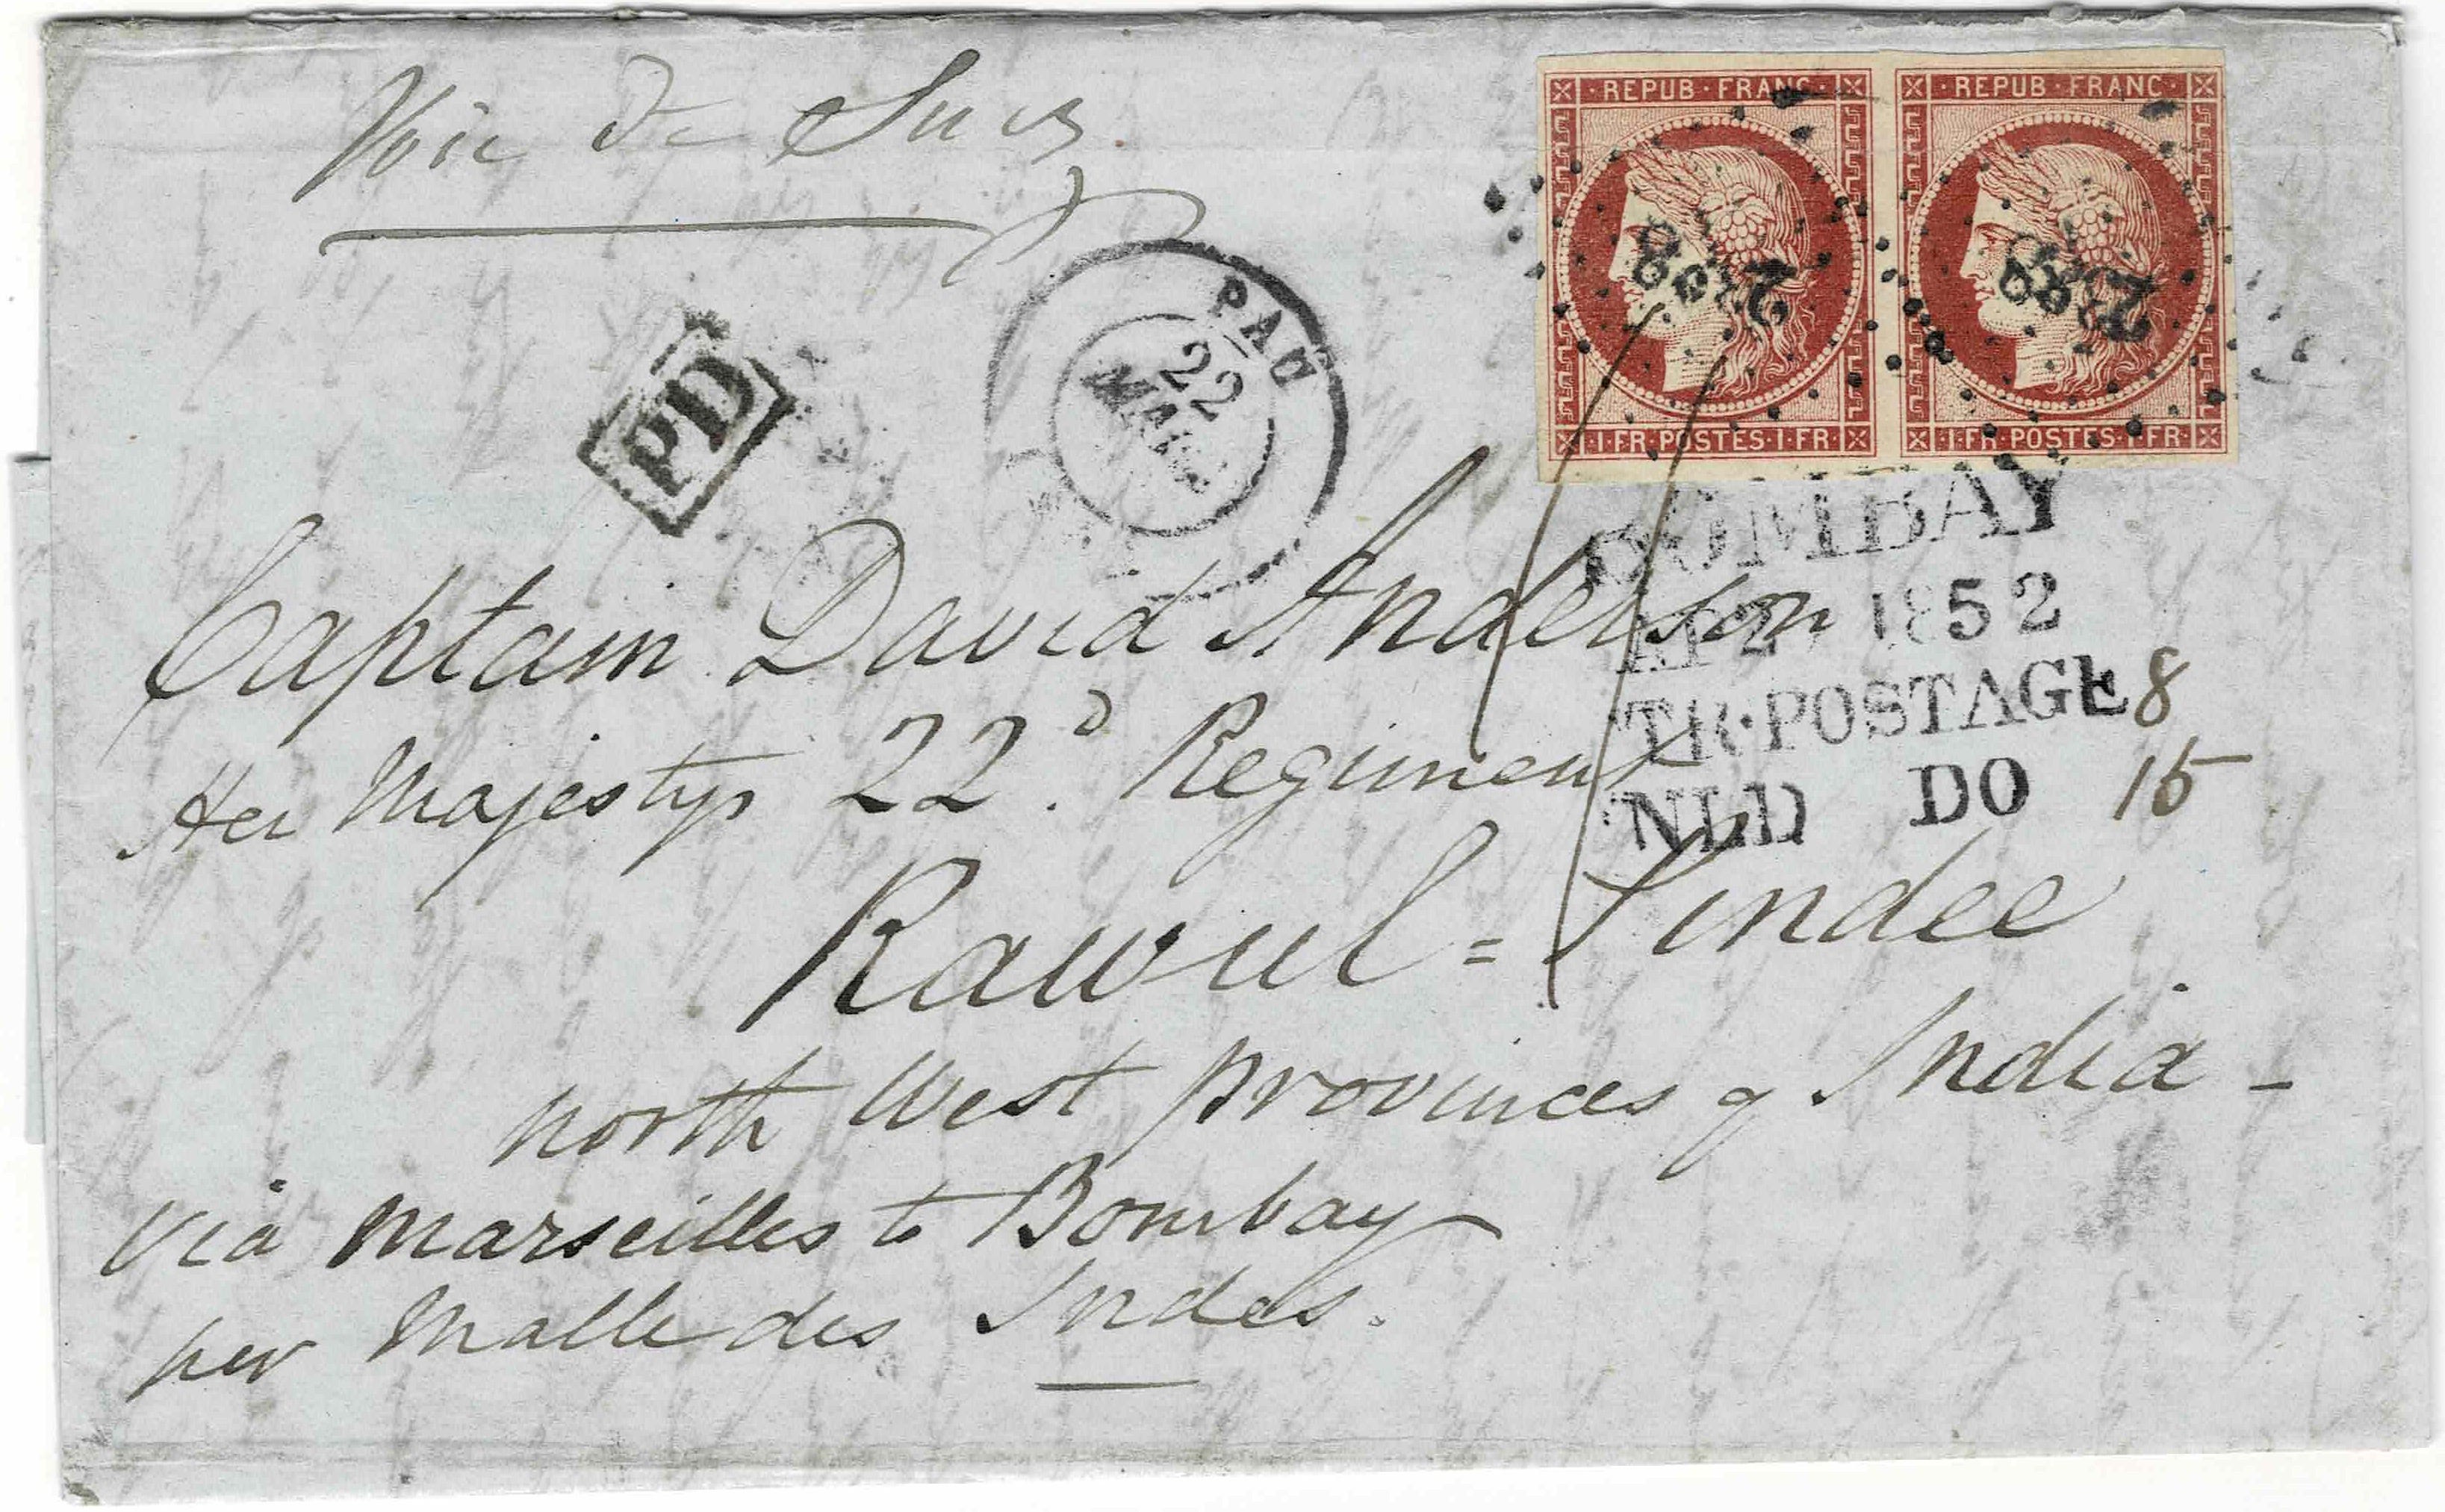 Voie de Suez
REPUB · FRANC
REPUB · FRANC
2388
2388
1·FR·POSTES·1·FR·
1·FR·POSTES·1·FR·
PD
PAU
22
MARS
BOMBAY
AP 2 1852
TR·POSTAGE 8
NLD DO 15
Captain David Anderson
Her Majestys 22d. Regiment
Rawul = Pindee
north West provinces of India -
via Marseilles to Bombay
per Malle des Indes.